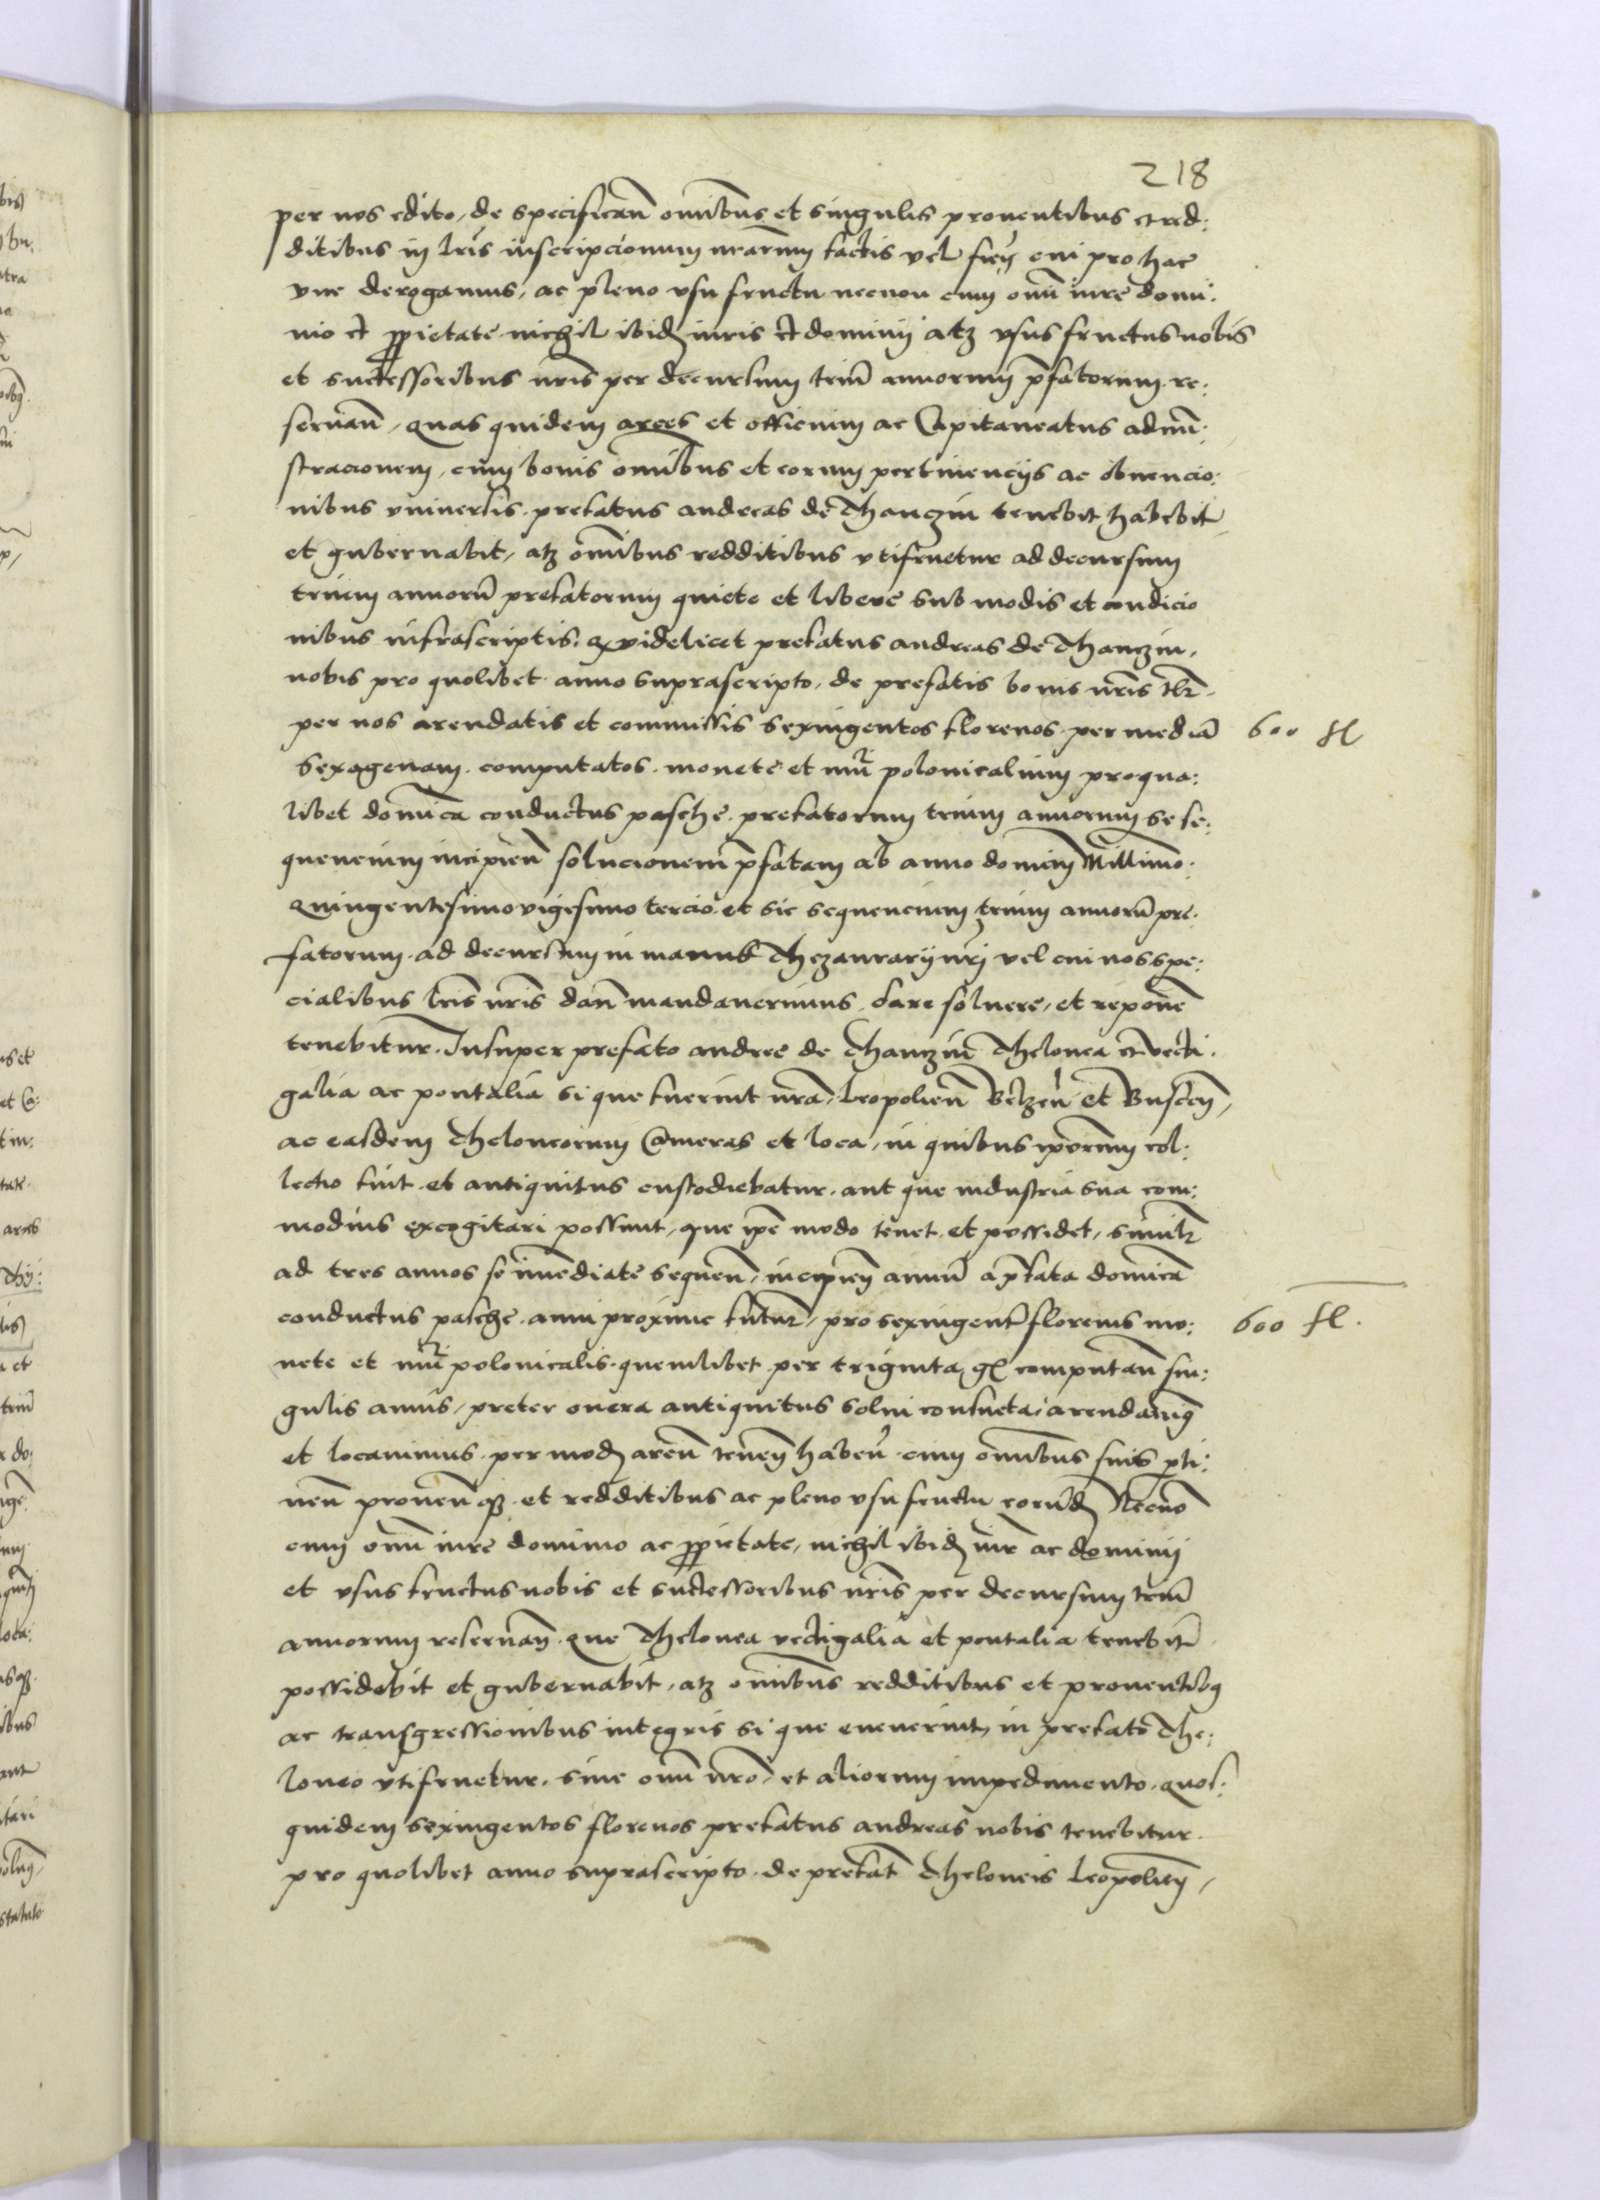 218
per nos edito, de specifican̄ omībus et singulis proventibus et red:
ditibus in lr̄is inscripcionum nr̄arum factis vel fien̄ cui pro hac
vice derogamus, ac pleno usu fructu necnon cum omī iure domi:
nio et ꝓprietate nichil ibidē iuris et dominii atqꝫ usus fructus nobis
et successoribus nr̄is per decursum trium annorum p̄fatorum re:
servan̄, quas quidem arces et officium ac Capitaneatus admi:
stracionem, cum bonis omībus et eorum pertinenciis ac obvencio:
nibus universis prefatus andreas de Thanczin tenebit habebit
et gubernabit, atqꝫ omībus redditibus utifruetur ad decursum
trium annorū prefatorum quiete et libere sub modis et condicio
nibus infrascriptis, qꝫ videlicet prefatus andreas de Thanczin,
nobis pro quolibet anno suprascripto, de prefatis bonis nr̄is
per nos arendatis et commissis sexingentos florenos per mediā
sexagenam computatos monete et nūi polonicalium pro qua:
libet domīca conductus pasche prefatorum trium annorum se se:
quencium incipien̄ solucionem p̄fatam ab anno domini Millīmo
Quingentesimo vigesimo tercio et sic sequencium trium annorū pre:
fatorum ad decursum in manus Thezaurarii nr̄i vel cui nos spe:
cialibus lr̄is nr̄is dan̄ mandaverimus dare solvere, et reponere
tenebitur. Insuper prefato andree de Thanczin Thelonea et vecti
galia ac pontalia si que fuerint nr̄a, Leopolien̄ Belzen̄ et Buscen̄,
ac easdem Theloneorum Cameras et loca, in quibus ip̄orum col:
lectio fuit et antiquitus custodiebatur aut que industria sua com:
modius excogitari possunt, que ip̄e modo tenet et possidet, similr̄
ad tres annos se īmediate sequen̄, incipien̄ annū a p̄fata domīca
conductus pasche anni proxime futuri, pro sexingentis florenis mo:
nete et nūi polonicalis quemlibet per triginta gr̄ computan̄ sin:
gulis annis, preter onera antiquitus solvi consueta, arendavimꝰ
et locavimus per modū aren̄ tenen̄ haben̄ cum omībus suis ꝑti:
nen̄ proven̄ qꝫ et redditibus ac pleno usu fructu eorūdē Necnō
cum omī iure dominio ac ꝓprietate, nichil ibidē iur̄ ac dominii
et usus fructus nobis et successoribus nr̄is per decursum trium
annorum reservan̄ que Thelonea vectigalia et pontalia tenebit
possidebit et gubernabit, atqꝫ omībus redditibus et proventibꝰ
ac transgressionibus integris si que evenerint, in prefato The:
loneo utifruetur, sine omī nr̄o, et aliorum impedimento, quos
quidem sexingentos florenos prefatus andreas nobis tenebitur
pro quolibet anno suprascripto de prefatis Theloneis Leopolien̄,
600 fl
600 fl.